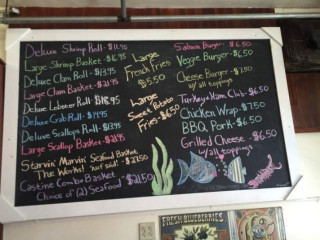 Deluxe Shrimp Roll - $11.95
Large Shrimp Basket - $16.95
Deluxe Clam Roll - $13.95
Large Clam Basket - $21.50
Deluxe Lobster Roll - $18.95
Deluxe Crab Roll - $17.95
Deluxe Scallops Roll - $13.95
Large Scallop Basket - $21.95
Starvin' Marvin' Seafood Basket
The Works! "nuf said" - $23.50
Castine Combo Basket
Choice of (2) Seafood - $21.50
Large
French Fries
$5.50
Large
Sweet Potato
Fries - $6.50
Salmon Burger - $6.50
Veggie Burger - $6.50
Cheese Burger - $7.50
w/ all toppings
Turkey & Ham Club - $6.50
Chicken Wrap - $7.50
BBQ Pork - $6.50
Grilled Cheese - $6.50
w/ all toppings
FRESH BLUEBERRIES